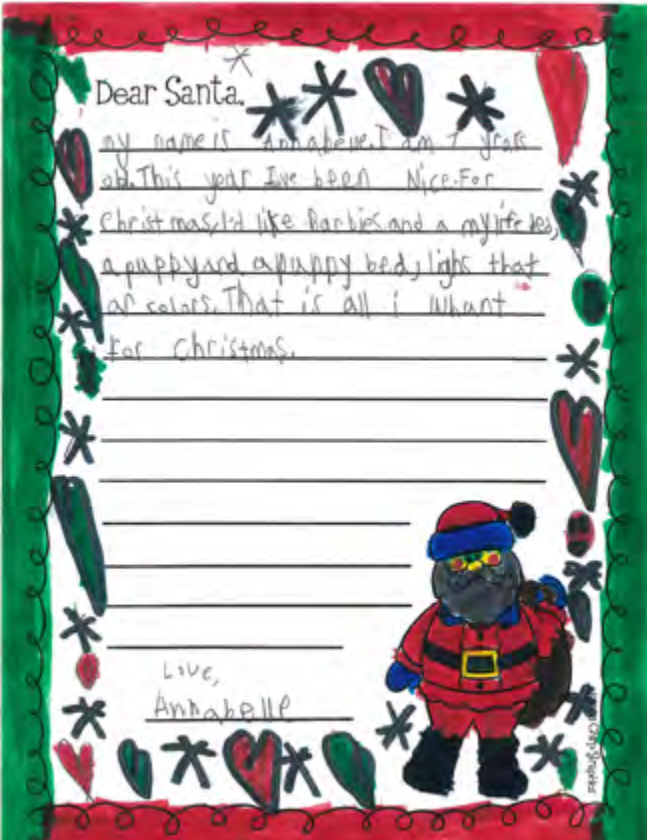 Dear Santa,
my name is Annabelle. I am 7 years
old. This year I've been Nice. For
Christmas, I'd like Barbies and a my life bed,
a puppy and a puppy bed, light that
ar colors. That is all i whant
for Christmas.
Love,
Annabelle